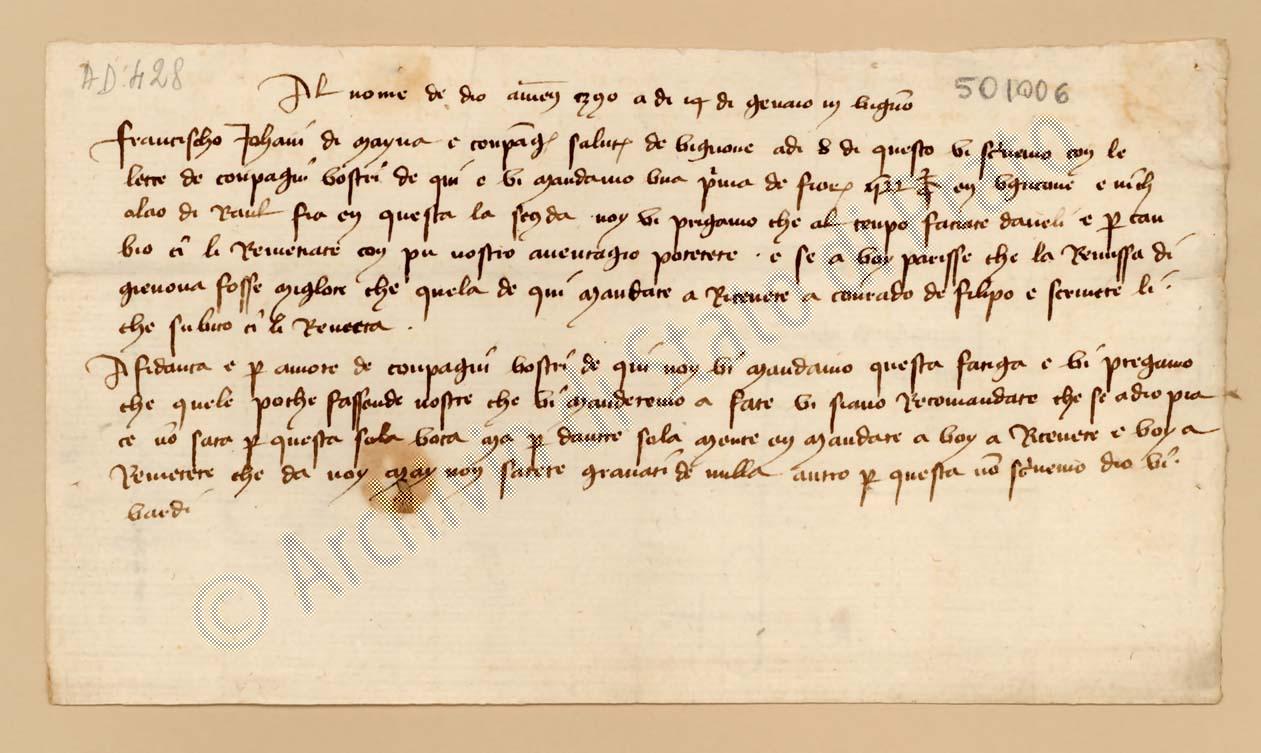 AD.428
501006
Al nome de dio amen 1390 a di 14 di genaio in vignō
Francischo Johani di Mayna e conpāg salut de vignone adi 8 di questo vi scrivemo con le
letre de conpagni vostri de qui e vi mandamo una prima de fior en ugieone e nich
olao di Raul fia en questa la seconda noy vi pregamo che al tenpo faciate daveli e per can
bio ci li Remetiate con piu nostro aventagio poterete · e se a voy parisse che la Remissa di
gienova fosse miglore che quela de qui mandate a Ricevere a conrado de filipo e scrivete li ·
che subito ci li Remeta ·
A fidanca e per amore de conpagni vostri de qui noy vi mandamo questa fatiga e vi pregamo
che quele poche fassende nostre che vi manderemo a fare vi siano Recomandate che se a dio pia
ce nō sara per questa sola vota ma per dautre sola mente en mandare a voy a Ricevere e voy a
Remetere che da noy may non sarete gravati de nulla autro per questa nō scrivemo dio vi ·
vardi
© Archivio di Stato di Prato